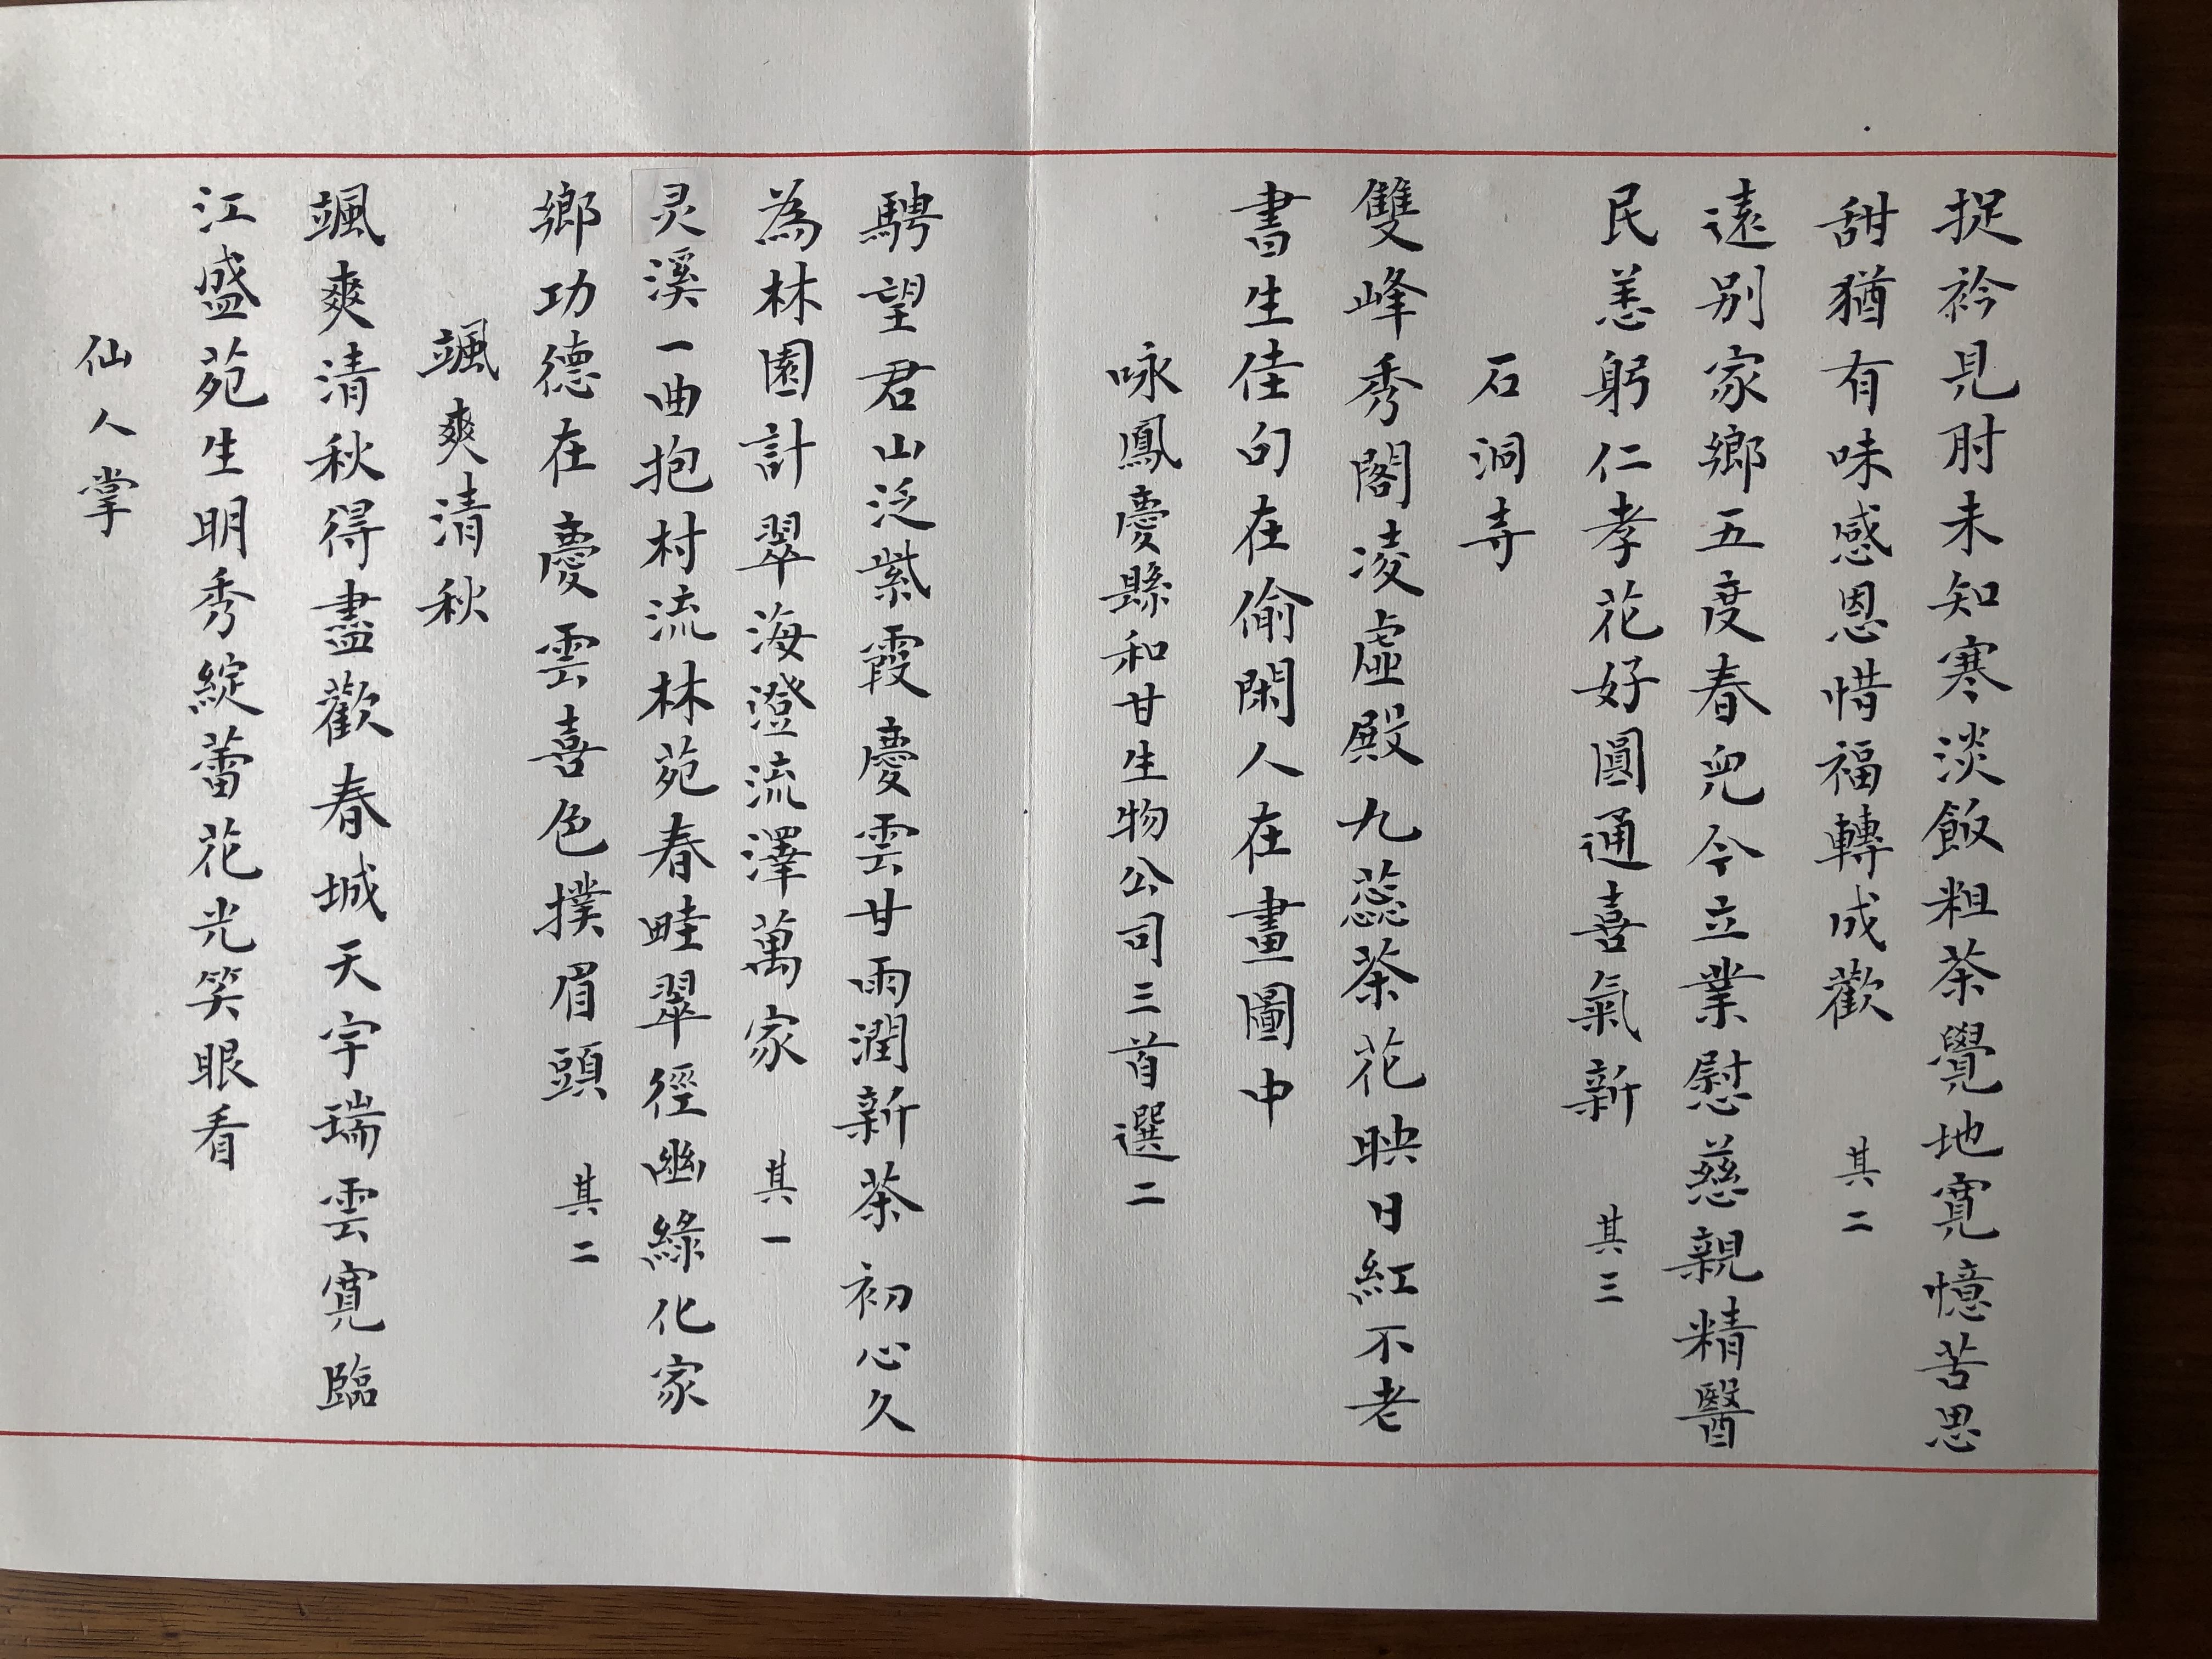 捉衿見肘未知寒淡飯粗茶覺地寬憶苦思
甜猶有味感恩惜福轉成歡 其二
遠別家鄉五度春兜今立業慰慈親精醫
民恙躬仁孝花好圓通喜氣新 其三
石洞寺
雙峰秀閣凌虛殿九蕊茶花映日紅不老
書生佳句在偷閑人在畫圖中
咏鳳慶縣和甘生物公司三首選二
騁望君山泛紫霞慶雲甘雨潤新茶初心久
為林園計翠海澄流澤萬家 其一
灵溪一曲抱村流林苑春畦翠徑幽綠化家
鄉功德在慶雲喜色撲眉頭 其二
颯爽清秋
颯爽清秋得盡歡春城天宇瑞雲寬臨
江盛苑生明秀綻蕾花光笑眼看
仙人掌